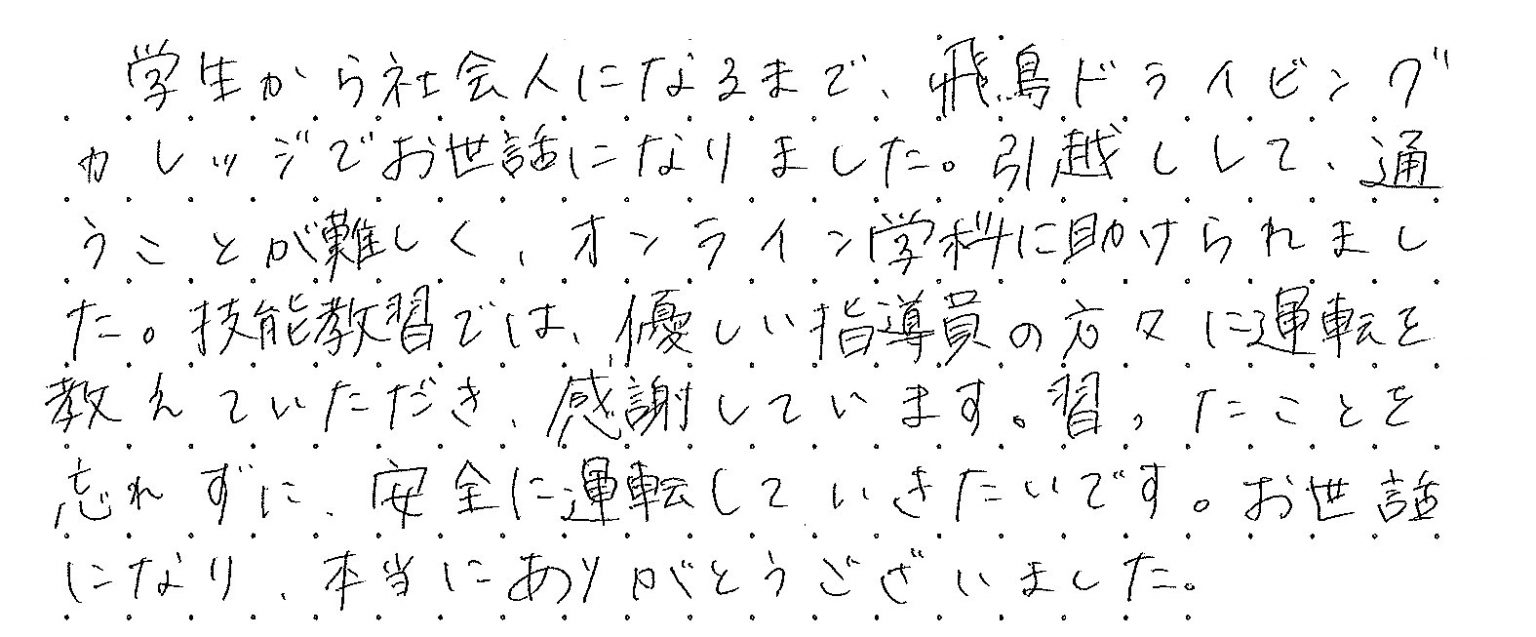 学生から社会人になるまで、飛鳥ドライビング
カレッジでお世話になりました。引越しして、通
うことが難しく、オンライン学科に助けられまし
た。技能教習では、優しい指導員の方々に運転を
教えていただき、感謝しています。習ったことを
忘れずに、安全に運転していきたいです。お世話
になり、本当にありがとうございました。